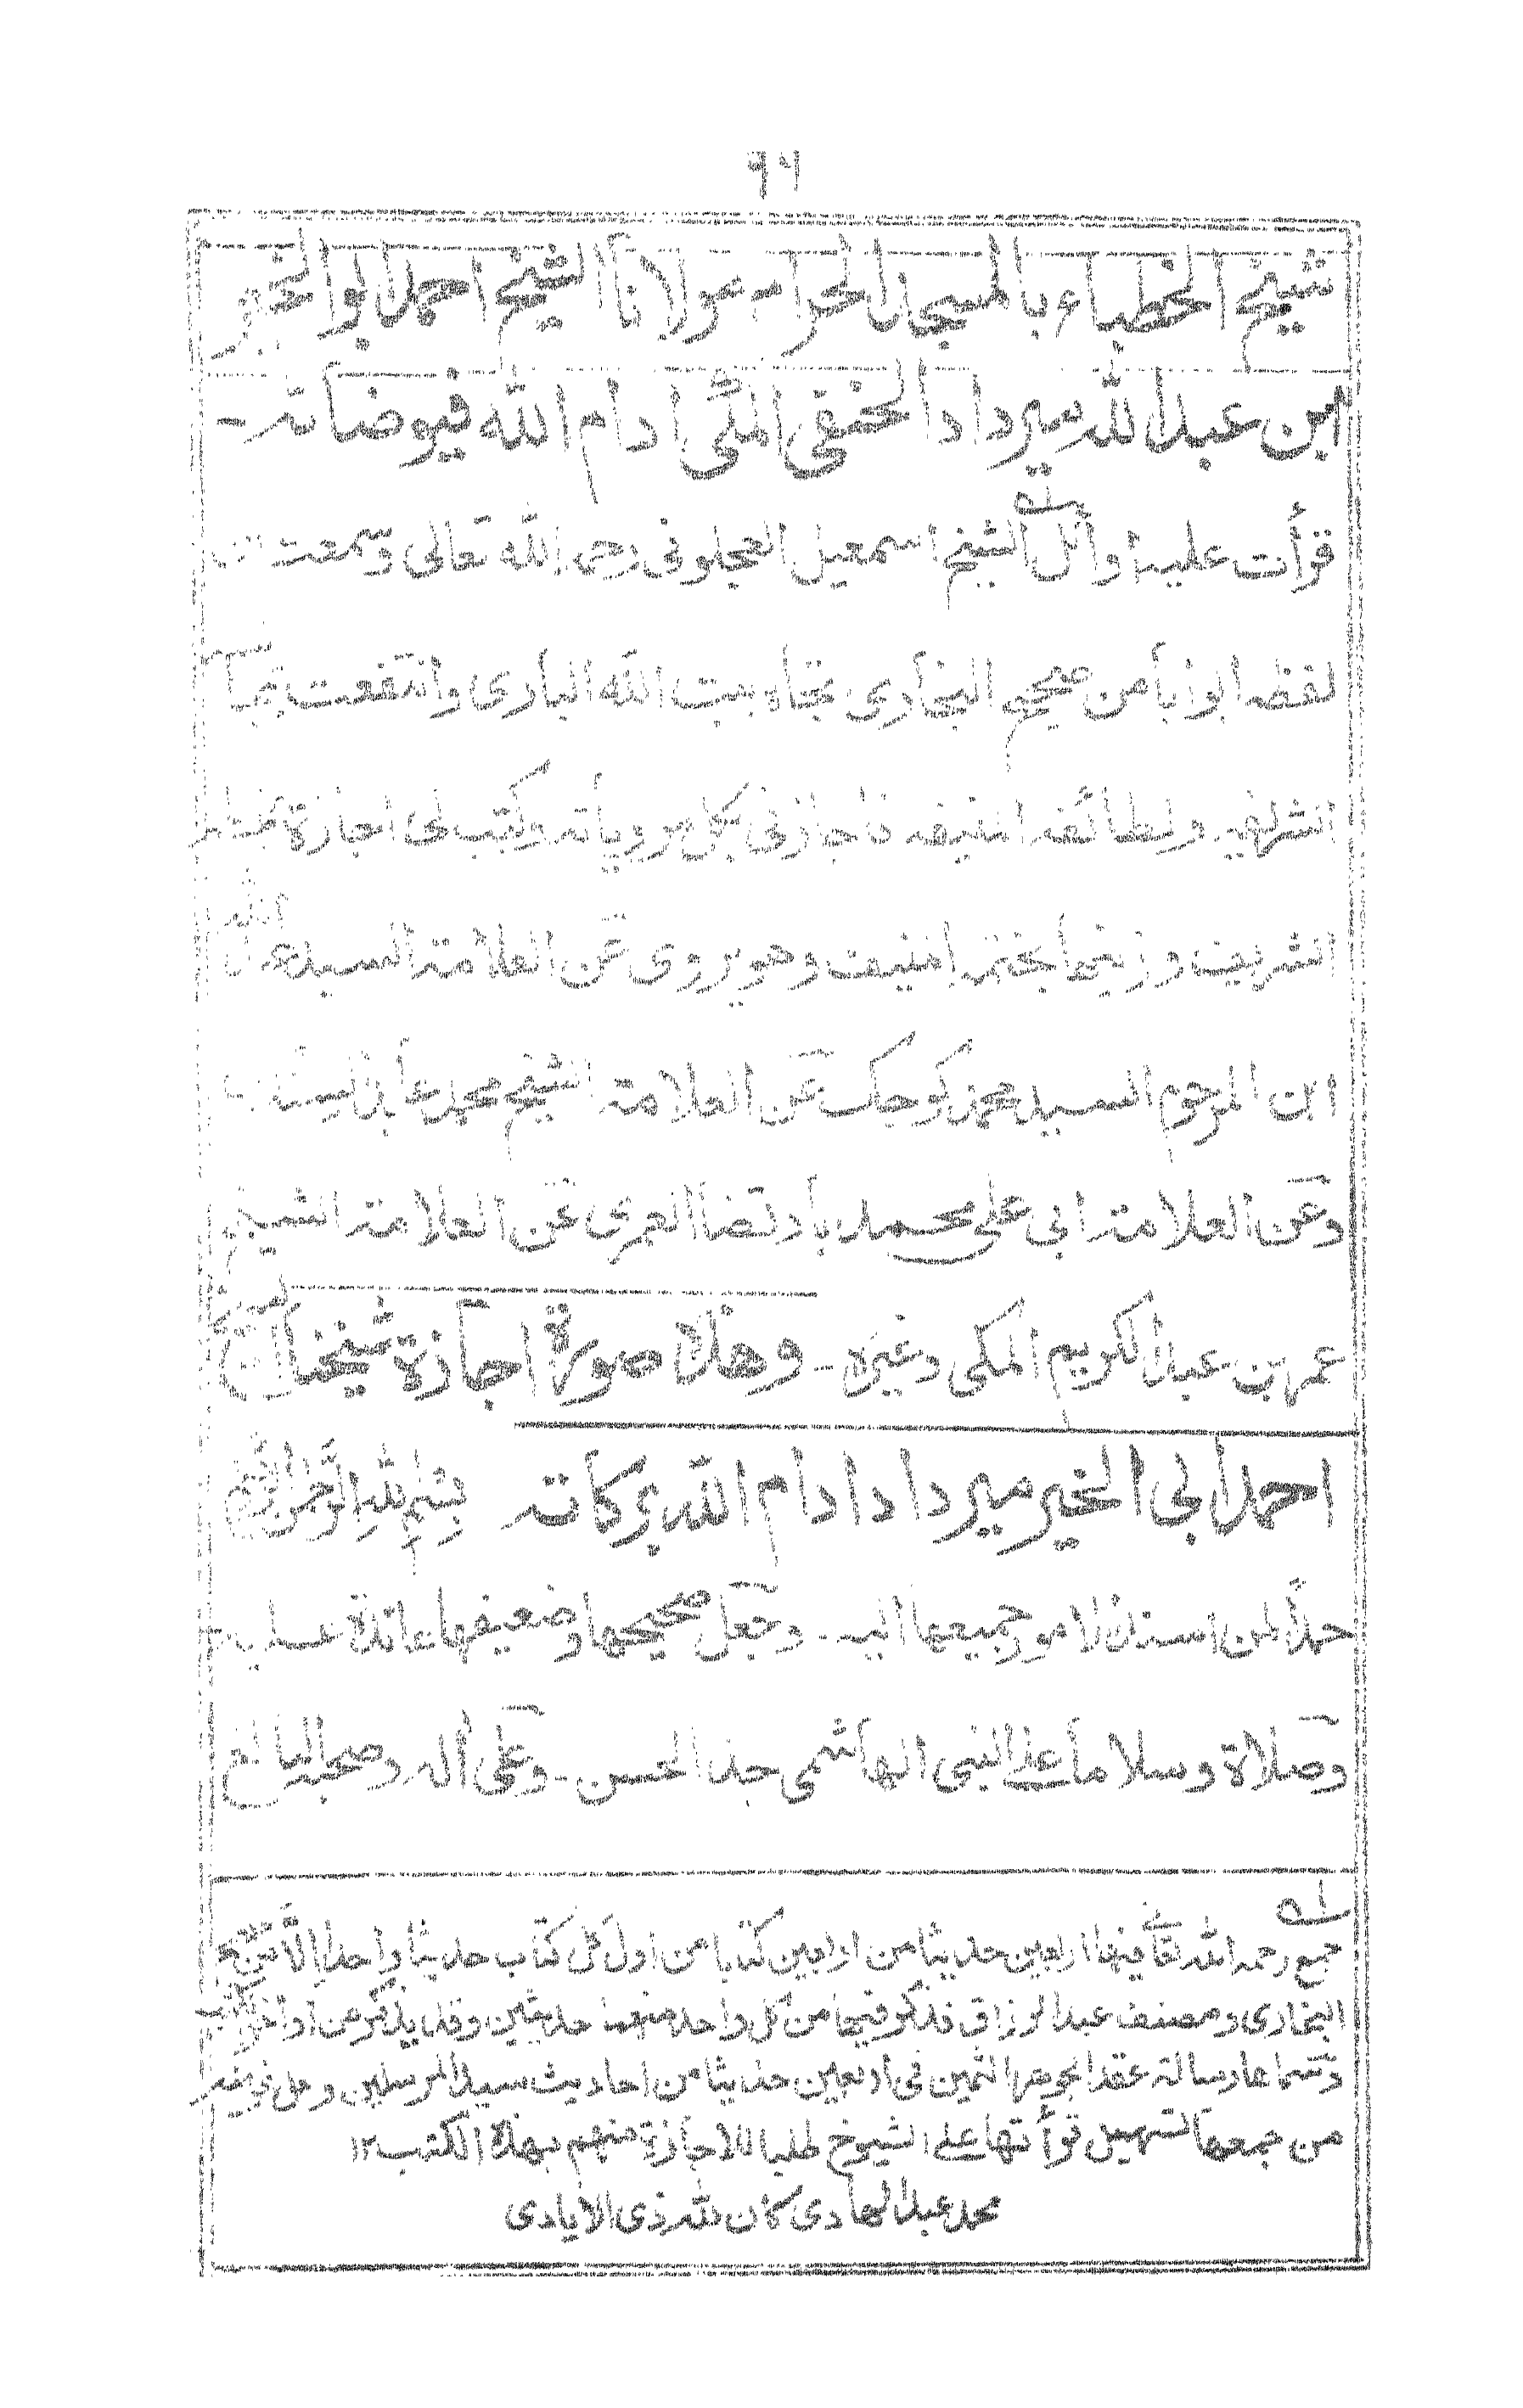 ٩٦
شيخ الخطباء بالمسجد الحرام مولانا الشيخ احمد ابو الخير
ابن عبد الله ميرداد الحنفى المكى ادام الله فيوضاته -
قرأت عليه اوائل الشيخ اسمعيل العجلونى رحمه الله تعالى وسمعت من
لفظه ابوابا من صحيح البخارى تجاه بيت الله البارى وانتفعت
الشريفة ولطائفه المنيفه فاجازنى بكل مروياته وكتب لى اجازة بخطه
الشريف وزينها بختمه المنيف وهو يروى عن العلامة السيد عبد الله
ابن المرحوم السيد محمد كوجك عن العلامة الشيخ محمد عابد السندى
وعن العلامة ابى على محمد بارتضا العمرى عن العلامة الشيخ
عمر بن عبد الكريم المكى وغيره - وهذه صورة اجازة شيخنا
احمد ابى الخير ميرداد ادام الله بركاته بسم الله الرحمن الرحيم
حمدا لمن اسند الامور جميعها اليه - وجعل صحيحها وضعيفها عائدة عليه
وصلاة وسلاما على النبى الهاشمى جد الحسن - وعلى أله وصحبه
جمع رحمه الله تعالى فيها اربعين حديثا من اربعين كتابا من اول كل كتاب حديثا واحدا الا من صحيح
البخارى ومصنف عبد الرزاق فذكر فيها من كل واحد منهما حديثين وقد يذكر من اواخر الكتب
وسماها رسالة عقد الجوهر الثمين فى اربعين حديثا من احاديث سيد المرسلين
من جمعها لتسهيل قرأتها على الشيوخ طلبا للاجازة منهم بهذه الكتب ١٢
محمد عبد الهادى كان لله ذى الايادى